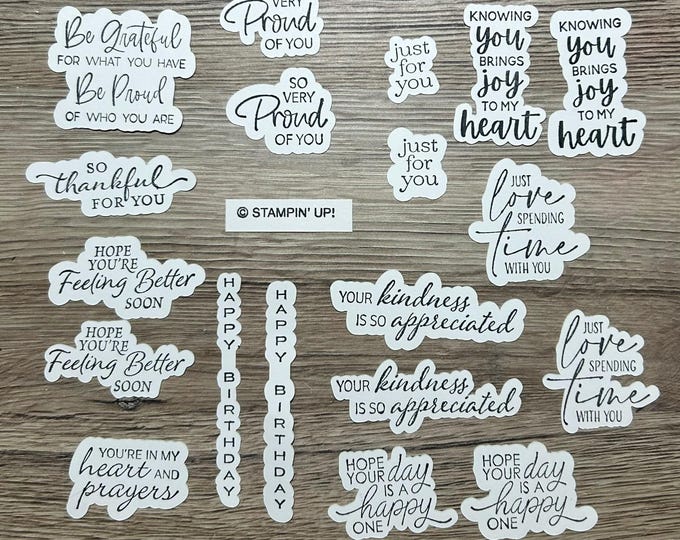 Be Grateful
FOR WHAT YOU HAVE
Be Proud
OF WHO YOU ARE
VERY
Proud
OF YOU
SO
VERY
Proud
OF YOU
just
for
you
just
for
you
KNOWING
you
BRINGS
joy
TO MY
heart
KNOWING
you
BRINGS
joy
TO MY
heart
SO
thankful
FOR YOU
© STAMPIN' UP!
JUST
love
SPENDING
time
WITH YOU
HOPE
YOU'RE
Feeling Better
SOON
HOPE
YOU'RE
Feeling Better
SOON
HAPPY BIRTHDAY
HAPPY BIRTHDAY
YOUR kindness
IS SO appreciated
YOUR kindness
IS SO appreciated
JUST
love
SPENDING
time
WITH YOU
YOU'RE IN MY
heart AND
prayers
HOPE
YOUR day
IS A
happy
ONE
HOPE
YOUR day
IS A
happy
ONE